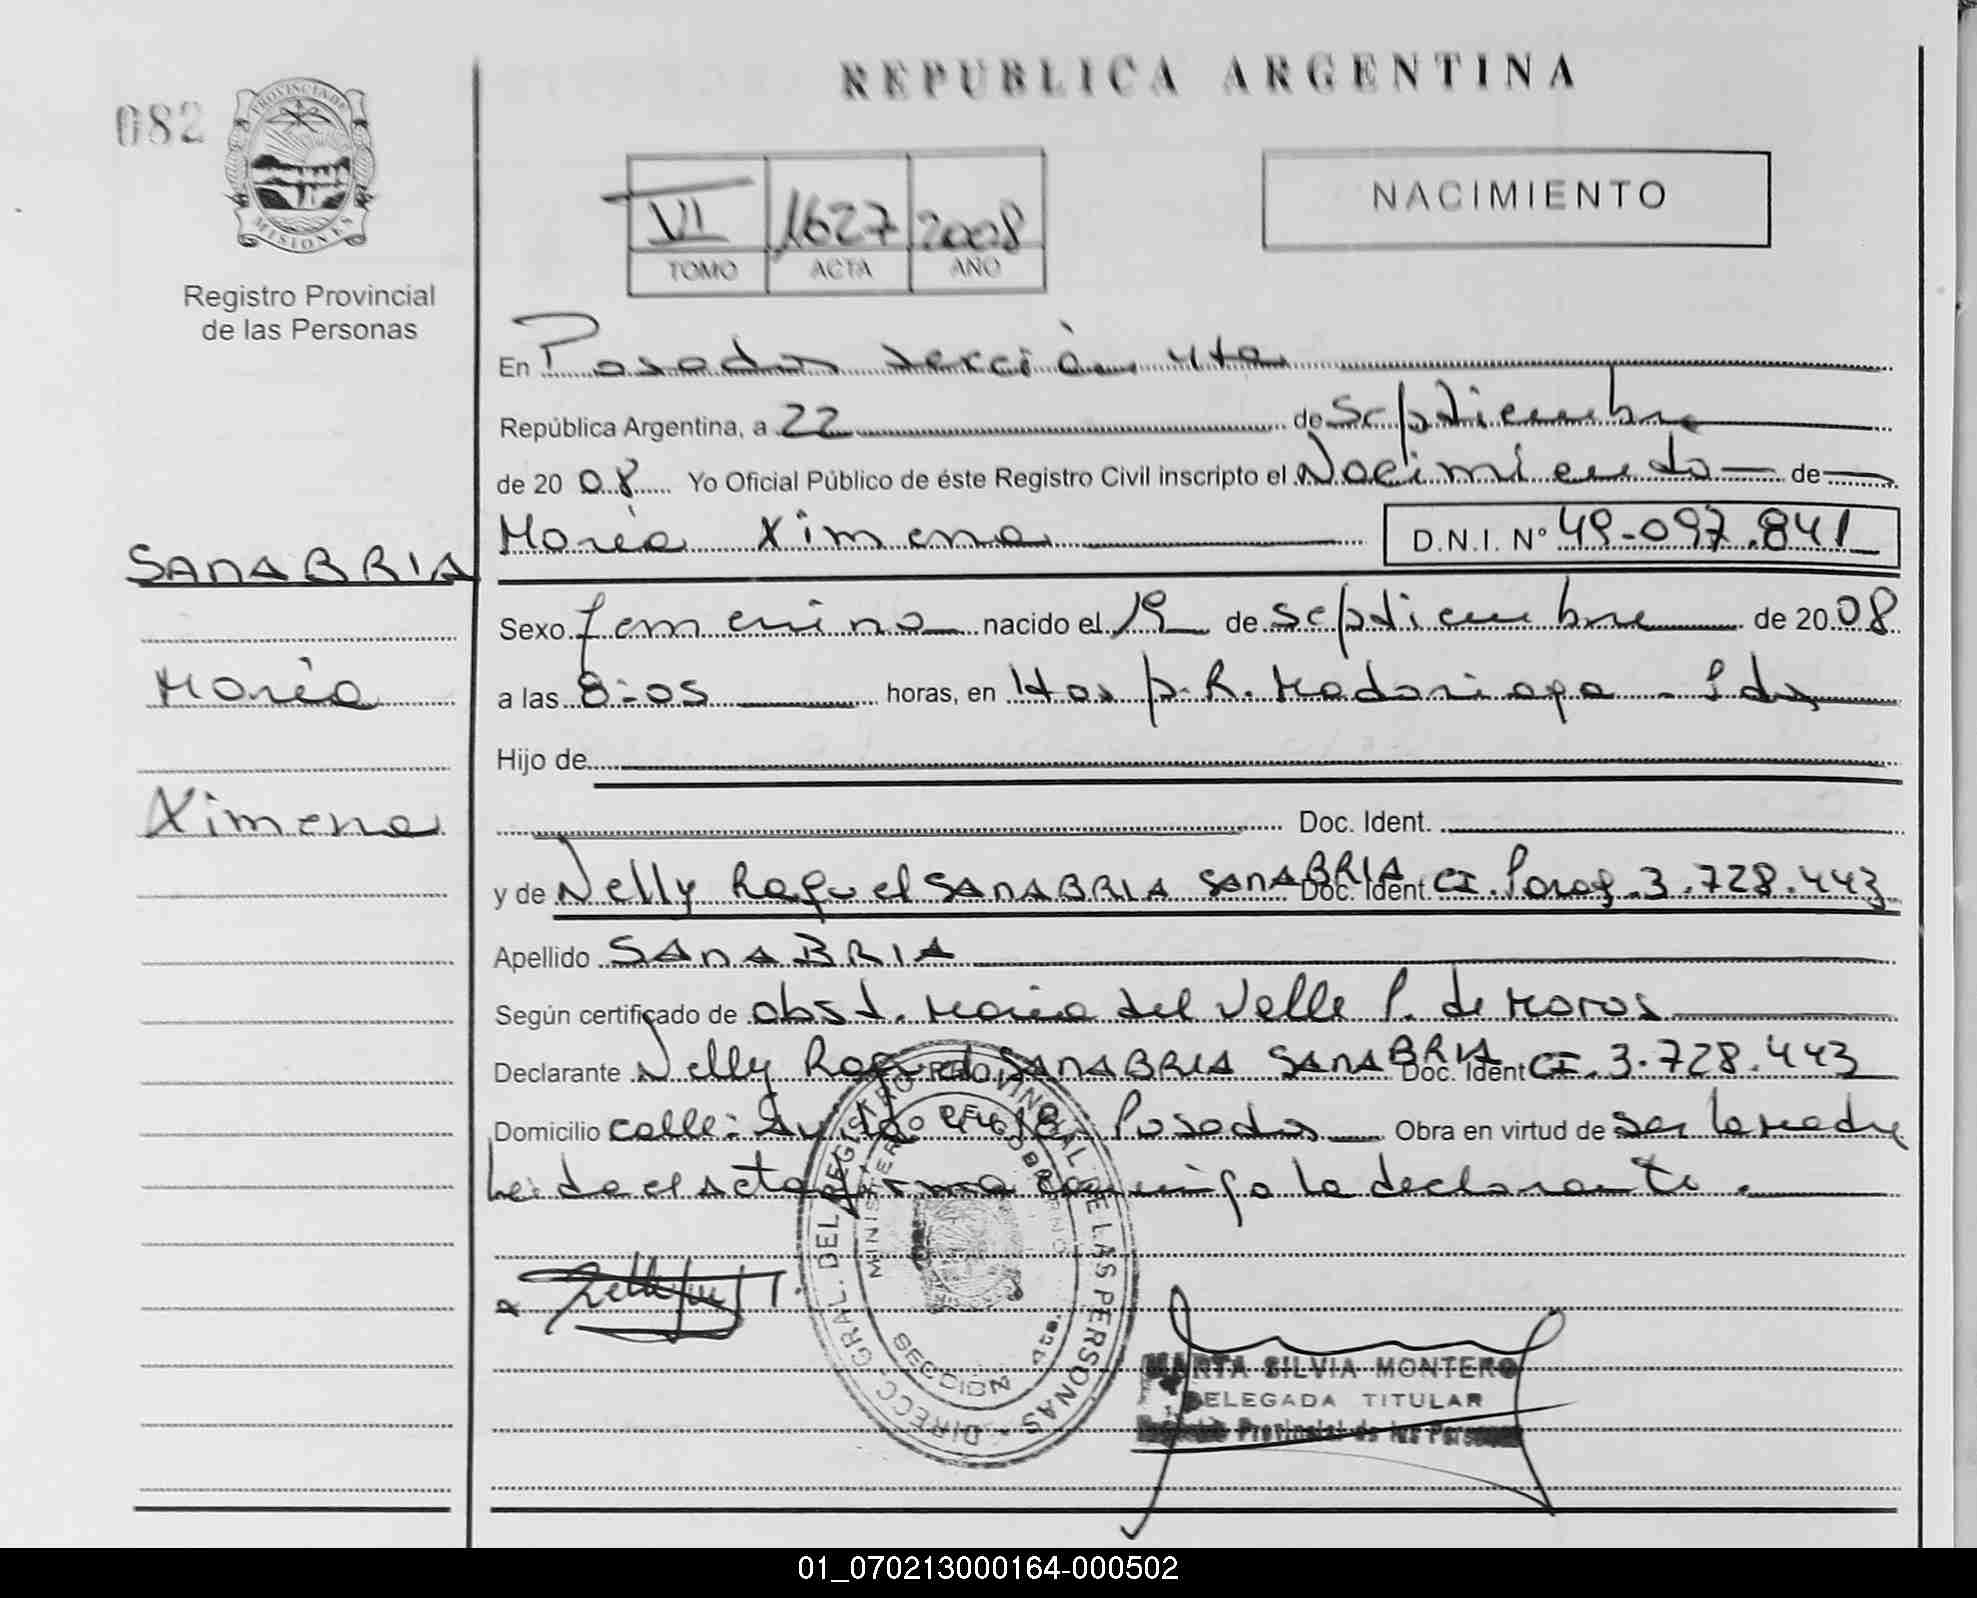 REPUBLICA ARGENTINA
082
PROVINCIA DE
MISIONES
Registro Provincial
de las Personas
VI 1627 2008
TOMO ACTA AÑO
NACIMIENTO
En Posadas sección 4ta
República Argentina, a 22 de Septiembre
de 2008 Yo Oficial Público de éste Registro Civil inscripto el Nacimiento de
María Ximena D.N.I. Nº 49.097.841
SANABRIA
María
Ximena
Sexo femenino nacido el 19 de septiembre de 2008
a las 8:05 horas, en Hosp. R. Madariaga - Pdas
Hijo de
Doc. Ident.
y de Nelly Raquel SANABRIA SANABRIA Doc. Ident. CI. Parag. 3.728.443
Apellido SANABRIA
Según certificado de obst. María del Valle P. de Moros
Declarante Nelly Raquel SANABRIA SANABRIA Doc. Ident CI. 3.728.443
Domicilio calle: Posadas Obra en virtud de ser la madre
Leída el acta firma conmigo la declarante.
DIRECC. GRAL. DEL REGISTRO PROVINCIAL DE LAS PERSONAS
MINISTERIO DE GOBIERNO
SECCIÓN 4ta.
MARTA SILVIA MONTERO
DELEGADA TITULAR
Registro Provincial de las Personas
01_070213000164-000502